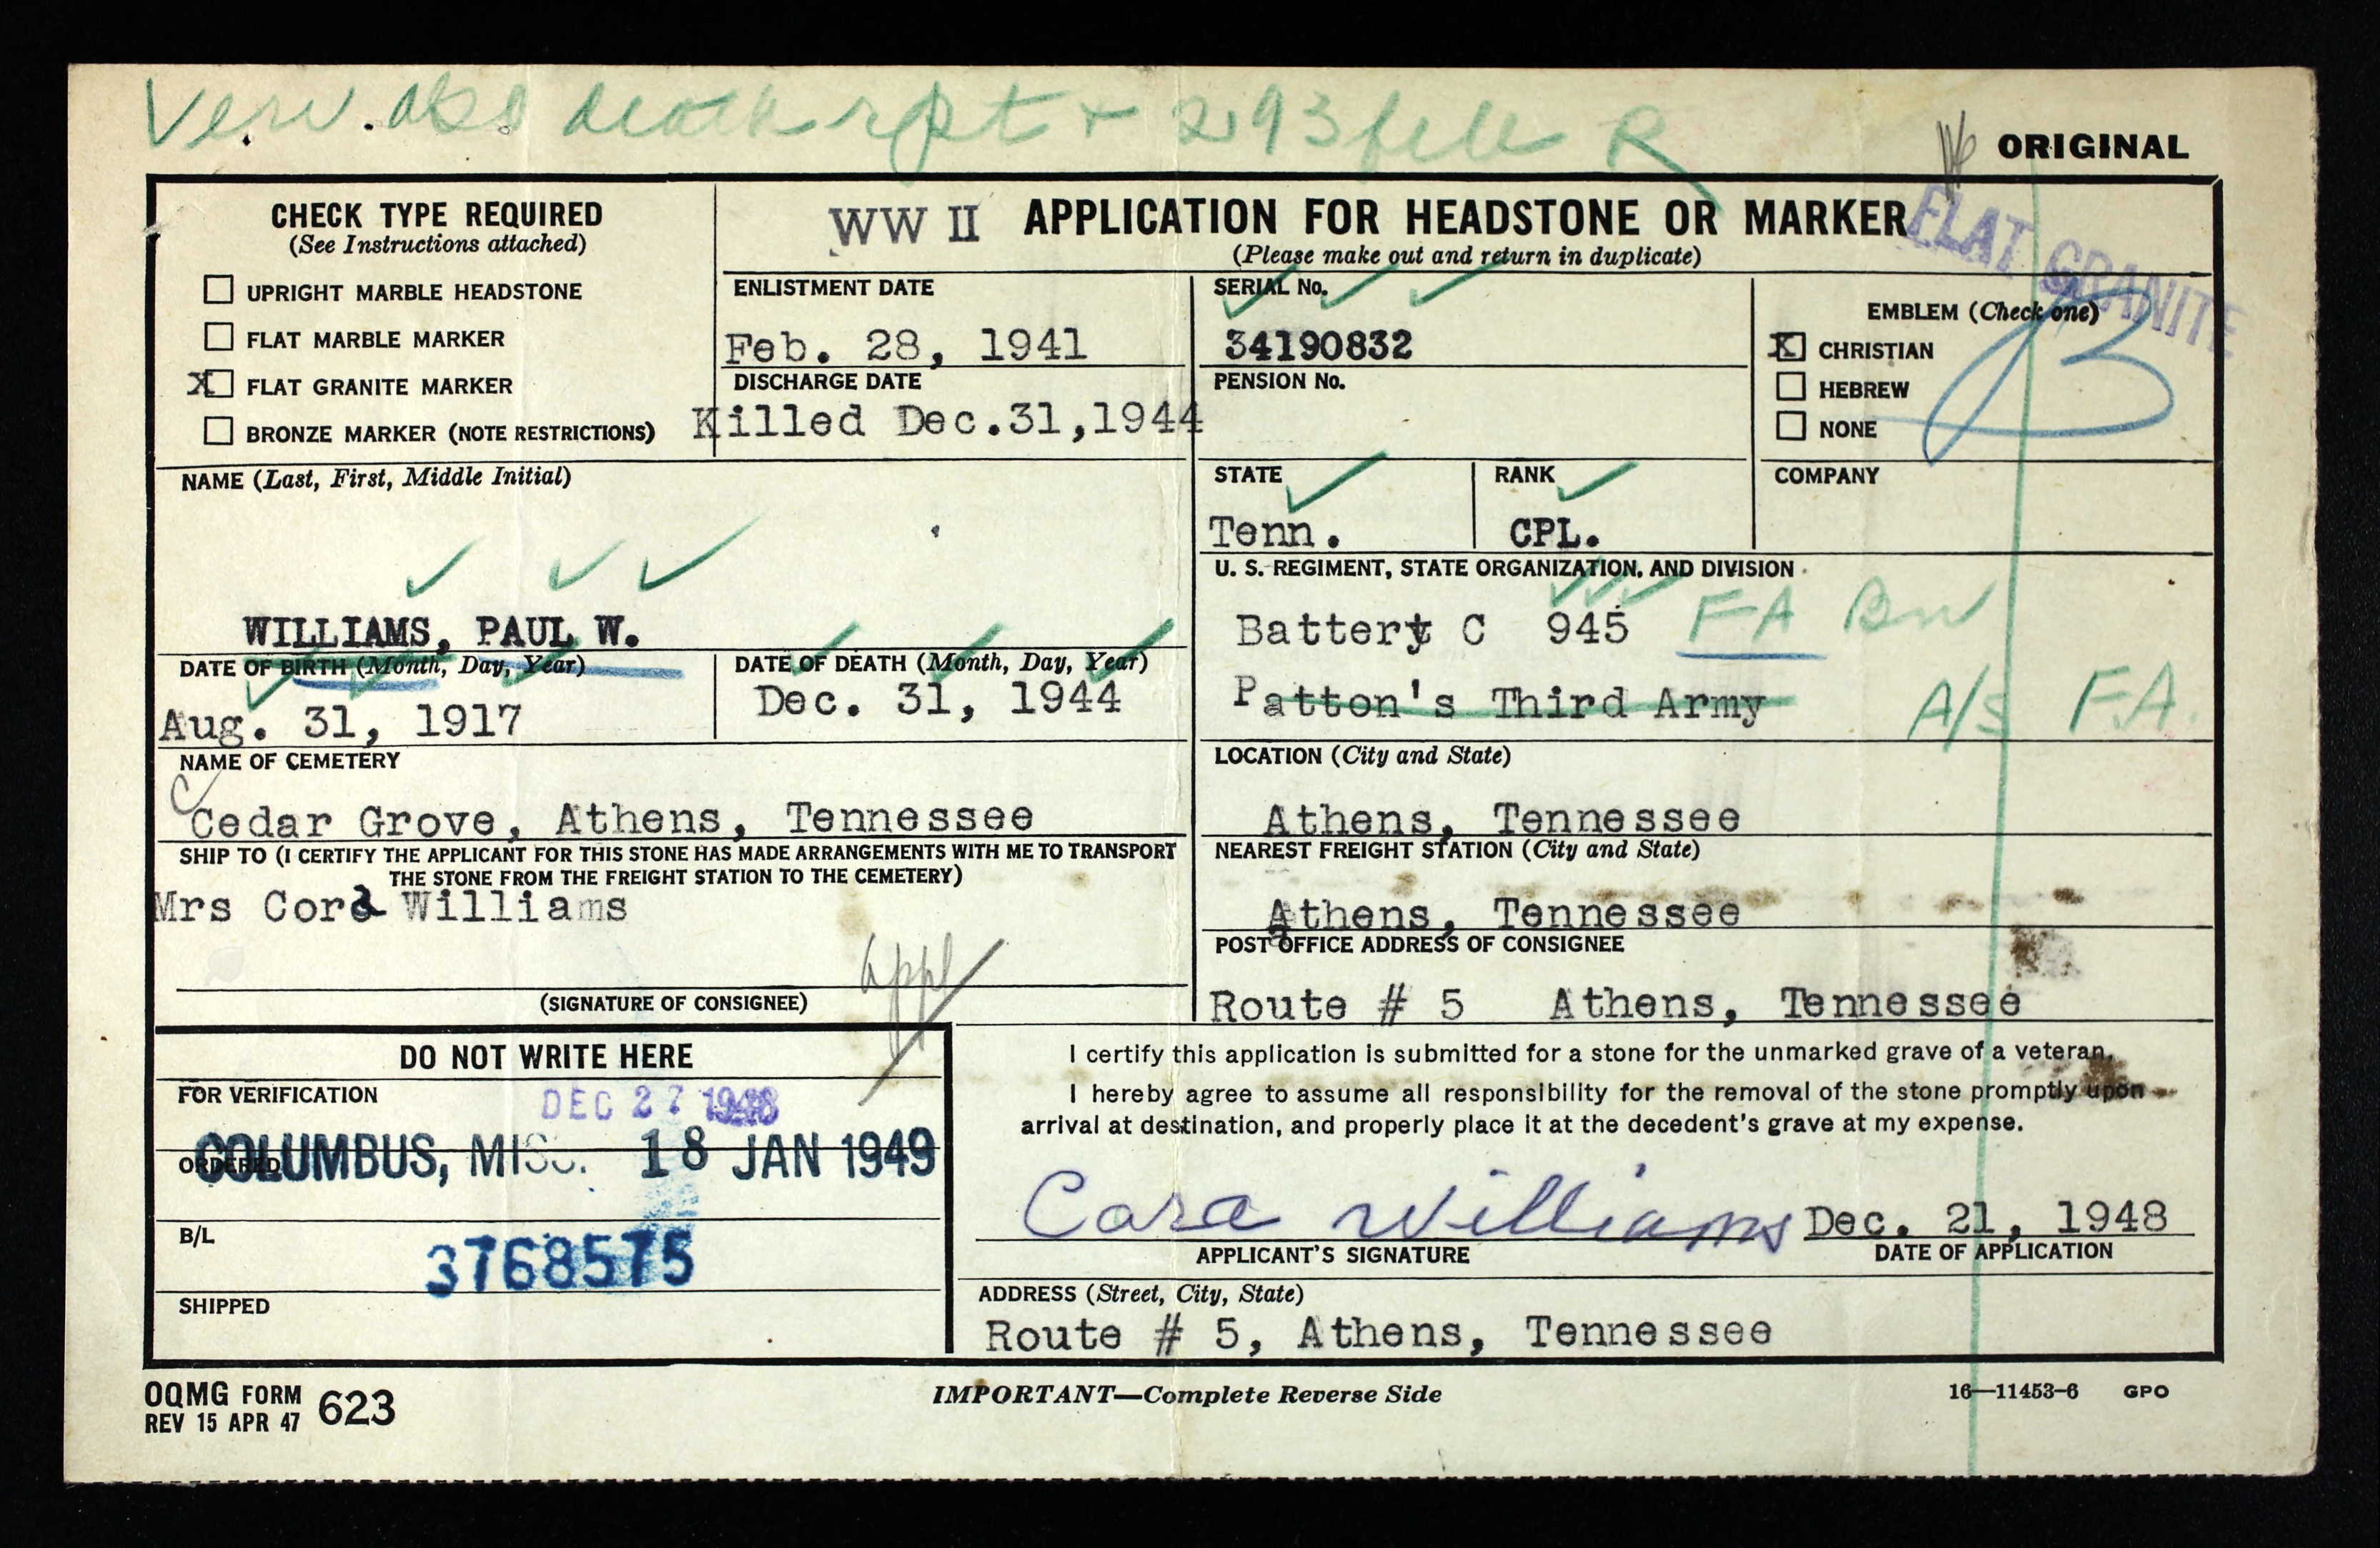 death rpt + 293 file R
ORIGINAL
CHECK TYPE REQUIRED
(See Instructions attached)
UPRIGHT MARBLE HEADSTONE
FLAT MARBLE MARKER
X FLAT GRANITE MARKER
BRONZE MARKER (NOTE RESTRICTIONS)
WW II APPLICATION FOR HEADSTONE OR MARKER
(Please make out and return in duplicate)
FLAT GRANITE
ENLISTMENT DATE
Feb. 28, 1941
DISCHARGE DATE
Killed Dec.31,1944
SERIAL No.
34190832
PENSION No.
EMBLEM (Check one)
X CHRISTIAN
HEBREW
NONE
B
NAME (Last, First, Middle Initial)
WILLIAMS, PAUL W.
STATE
Tenn.
RANK
CPL.
COMPANY
U. S. REGIMENT, STATE ORGANIZATION, AND DIVISION
Battery C 945 FA Bn
Patton's Third Army A/S FA.
DATE OF BIRTH (Month, Day, Year)
Aug. 31, 1917
DATE OF DEATH (Month, Day, Year)
Dec. 31, 1944
NAME OF CEMETERY
Cedar Grove, Athens, Tennessee
LOCATION (City and State)
Athens, Tennessee
SHIP TO (I CERTIFY THE APPLICANT FOR THIS STONE HAS MADE ARRANGEMENTS WITH ME TO TRANSPORT
THE STONE FROM THE FREIGHT STATION TO THE CEMETERY)
Mrs Cora Williams
NEAREST FREIGHT STATION (City and State)
Athens, Tennessee
appl
(SIGNATURE OF CONSIGNEE)
POST OFFICE ADDRESS OF CONSIGNEE
Route # 5 Athens, Tennessee
DO NOT WRITE HERE
FOR VERIFICATION
DEC 27 1948
ORDERED
COLUMBUS, MISS. 18 JAN 1949
B/L
3768575
SHIPPED
I certify this application is submitted for a stone for the unmarked grave of a veteran.
I hereby agree to assume all responsibility for the removal of the stone promptly upon
arrival at destination, and properly place it at the decedent's grave at my expense.
Cora Williams Dec. 21, 1948
APPLICANT'S SIGNATURE
DATE OF APPLICATION
ADDRESS (Street, City, State)
Route # 5, Athens, Tennessee
OQMG FORM 623
REV 15 APR 47
IMPORTANT—Complete Reverse Side
16—11453-6 GPO